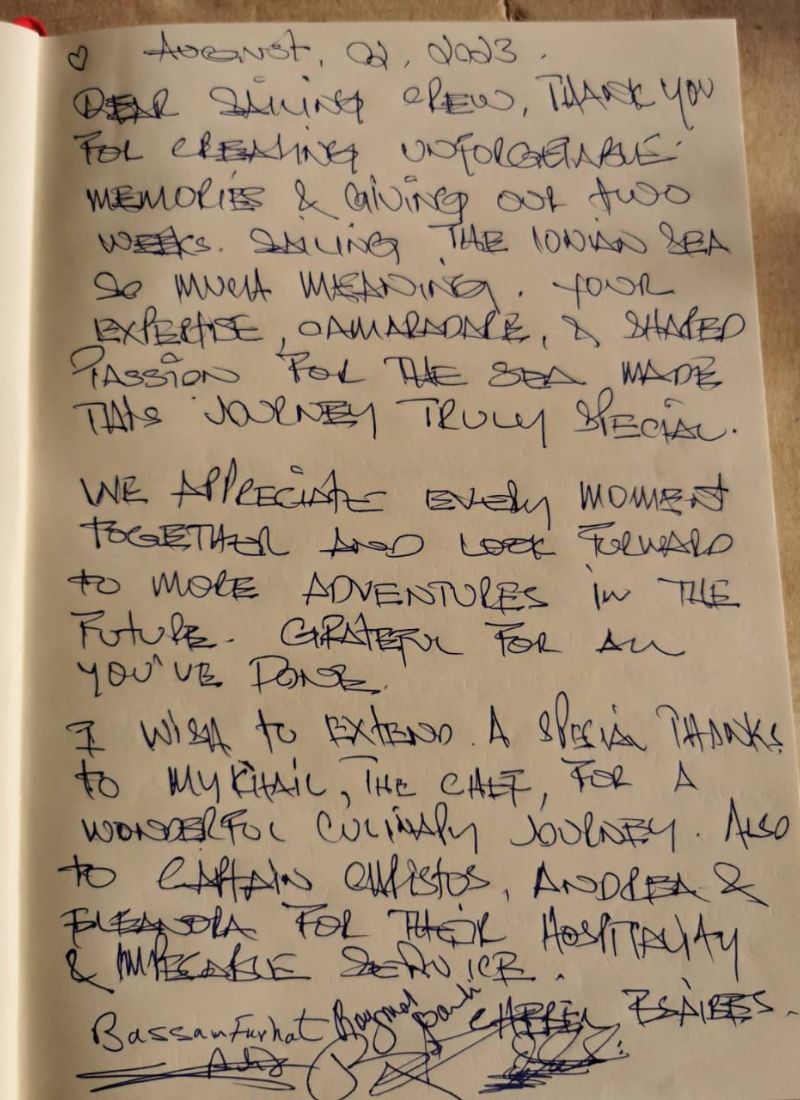 ♡ AUGUST, 02, 2023.
DEAR SAILING CREW, THANK YOU
FOR CREATING UNFORGETABLE
MEMORIES & GIVING OUR TWO
WEEKS. SAILING THE IONIAN SEA
SO MUCH MEANING. YOUR
EXPERTISE, CAMARADARE, & SHARED
PASSION FOR THE SEA MADE
THIS JOURNEY TRULY SPECIAL.
WE APPRECIATE EVERY MOMENT
TOGETHER AND LOOK FORWARD
TO MORE ADVENTURES IN THE
FUTURE. GRATEFUL FOR ALL
YOU'VE DONE.
I WISH TO EXTEND A SPECIAL THANKS
TO MYKHAIL, THE CHEF, FOR A
WONDERFUL CULINARY JOURNEY. ALSO
TO CAPTAIN CHRISTOS, ANDREA &
ELEANORA FOR THEIR HOSPITALITY
& IMPECABLE SERVICE.
Bassam Furhat